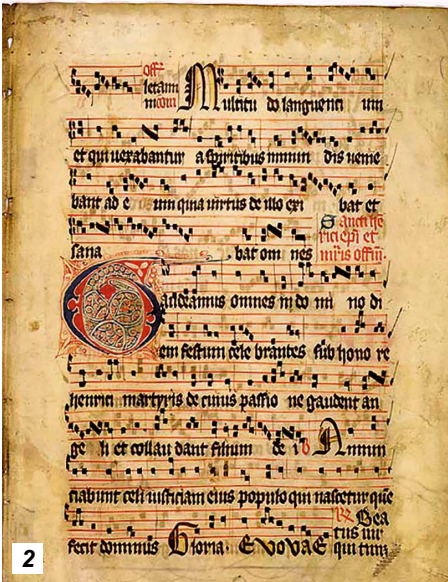 Off
letam
Multitu do languenti um
et qui uexabantur a spiritibus inmun dis uenie
bant ad e um quia uirtus de illo exi bat et
Sancti he
rici epi et
mris offm
sana bat om nes
Gaudeamus omnes in do mi no di
em festum cele brantes sub hono re
henrici martyris de cuius passio ne gaudent an
ge li et collau dant filium de i Annun
ciabunt celi iusticiam eius populo qui nascetur que
Bea
tus uir
fecit dominus Gloria. EVOVAE qui tim
2